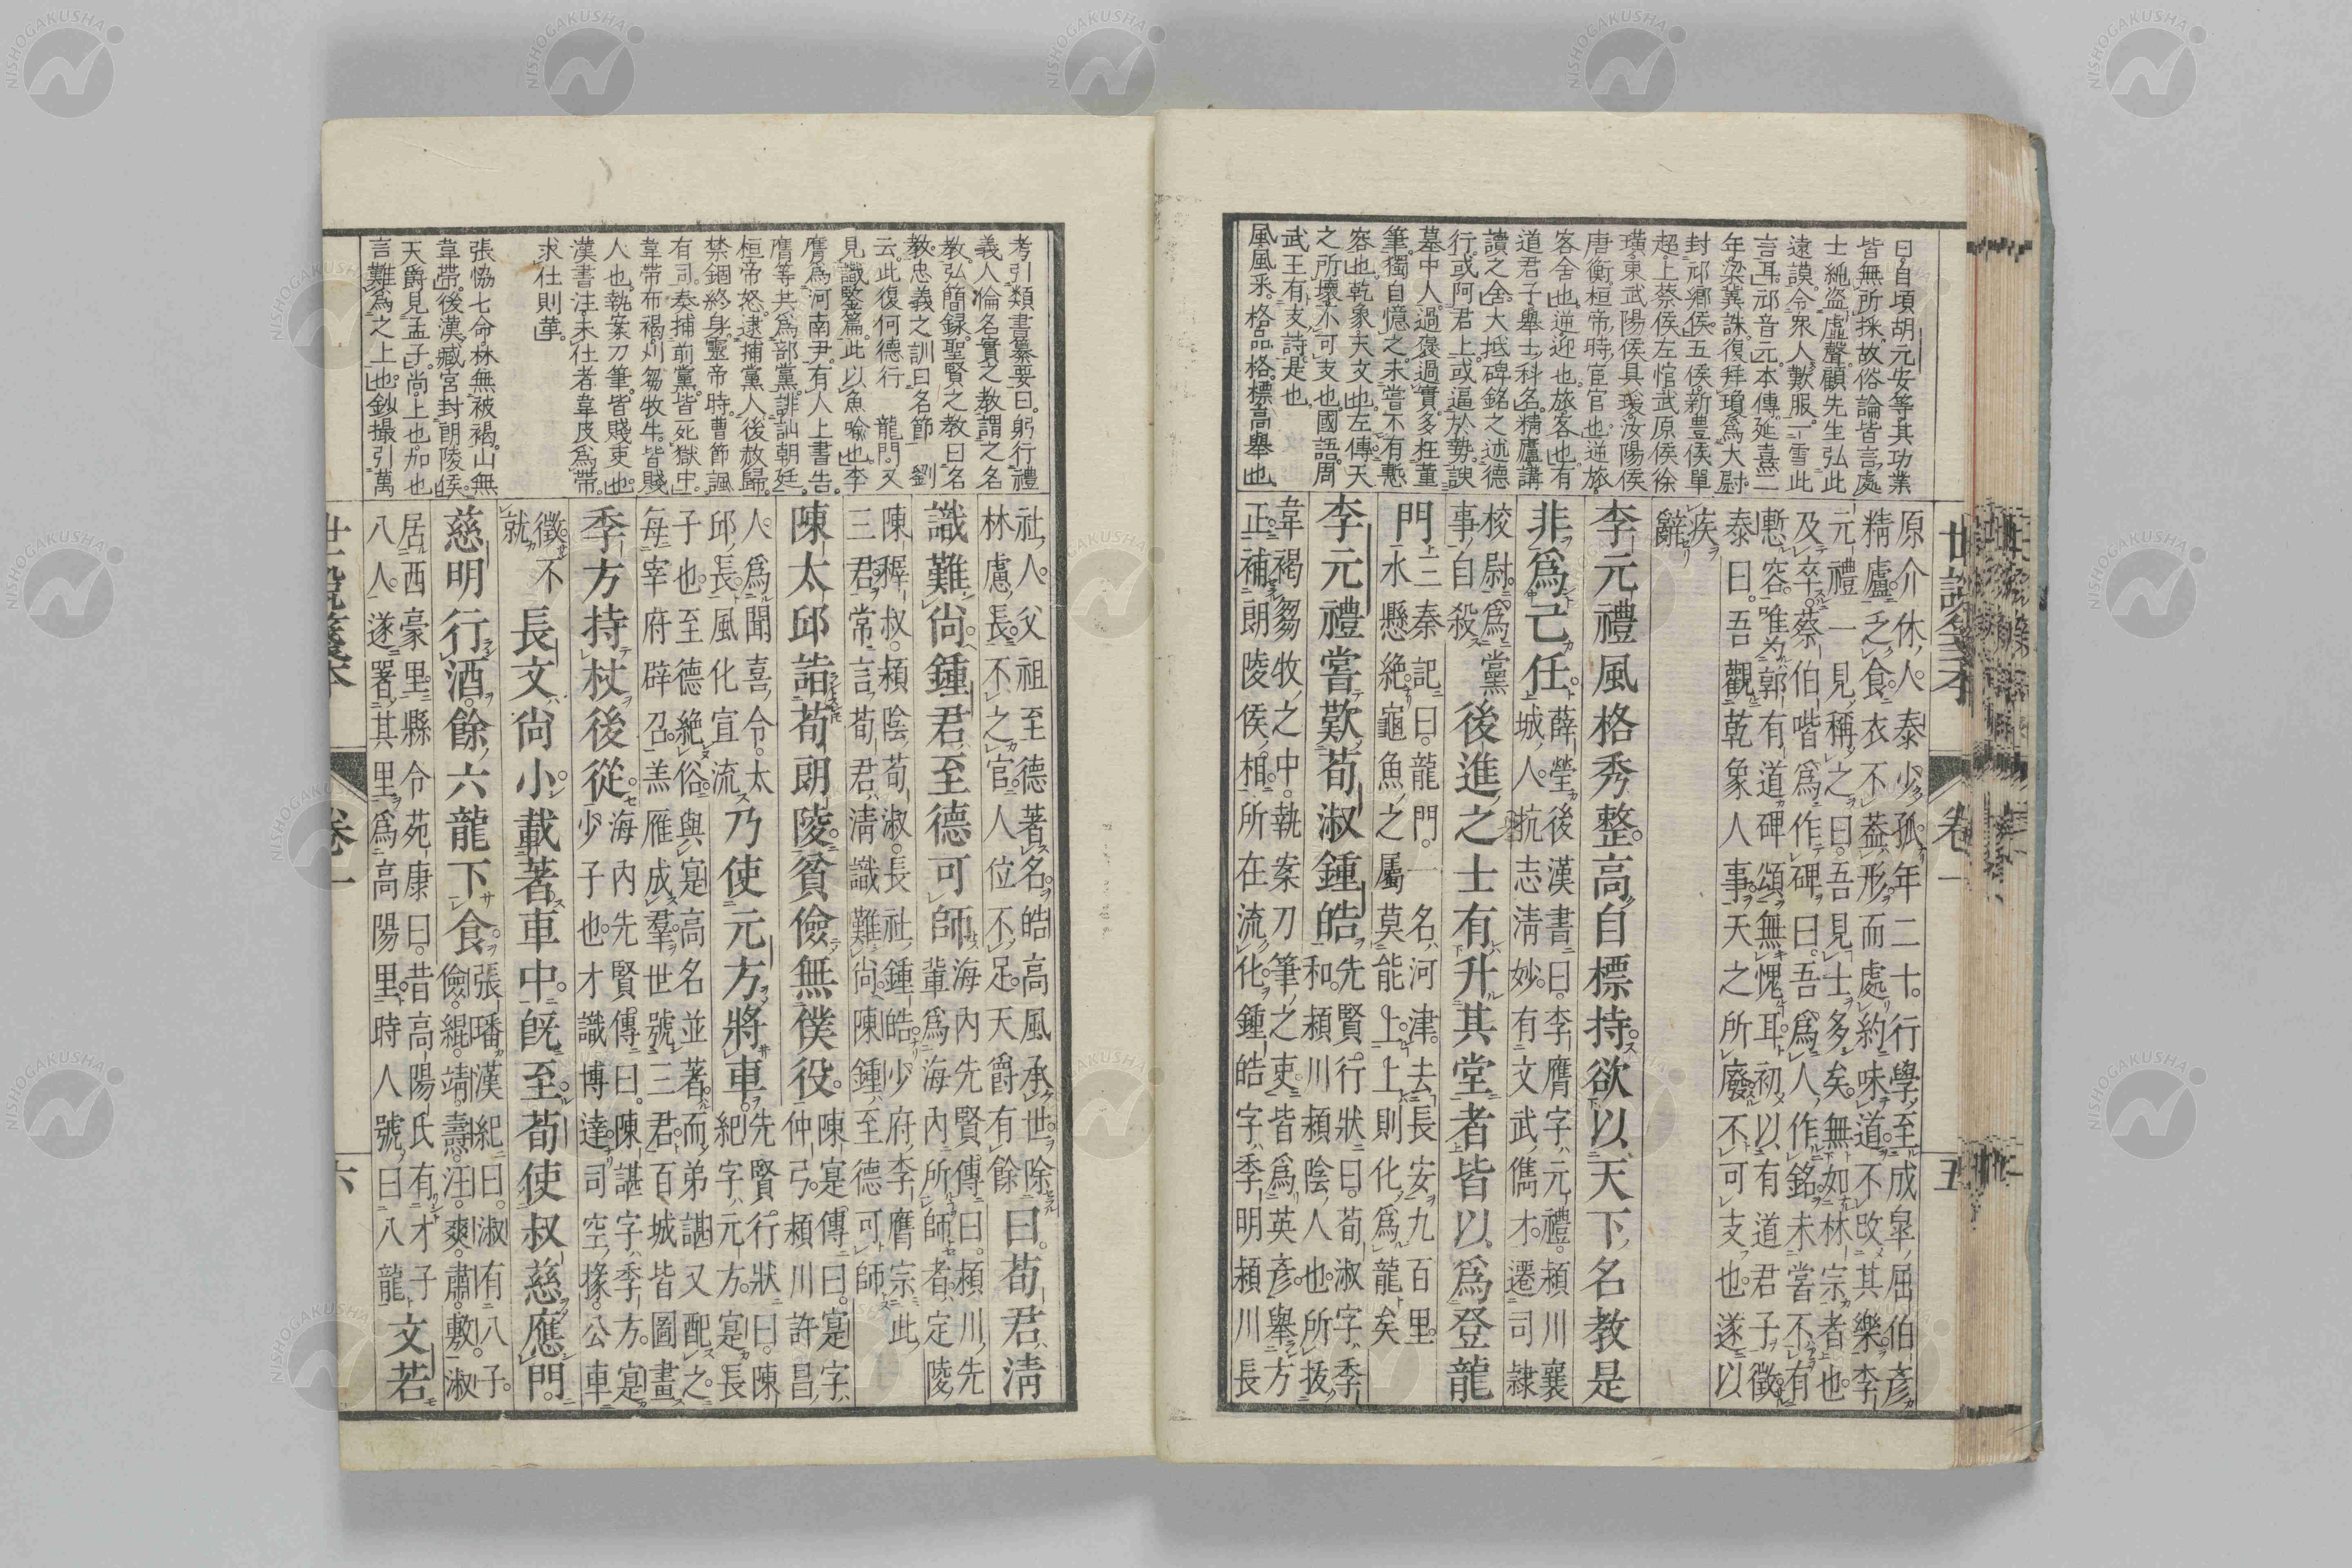 曰自頃胡元安等其功業
皆無所採故俗論皆言處
士純盜虛聲願先生弘此
遠謨令眾人歎服一雪此
言耳邟音元本傳延熹二
年梁冀誅復拜瓊爲大尉
封邟鄉侯五侯新豊侯單
超上蔡侯左悺武原侯徐
璜東武陽侯具瑗汝陽侯
唐衡桓帝時宦官也逆旅
客舍也逆迎也旅客也有
道君子舉士科名精廬講
讀之舍大抵碑銘之述德
行或阿君上或逼於勢諛
墓中人過褒過實多在董
筆獨自憶之未嘗不有慙
容也乾象天文也左傳天
之所壞不可支也國語周
武王有支詩是也
風風采格品格標高舉也
世說箋本
卷一
五
原介休人泰少孤年二十行學至成皐屈伯彥
精廬乏食衣不葢形而處約味道不改其樂李
元禮一見稱之曰吾見士多矣無如林宗者也
及卒蔡伯喈爲作碑曰吾爲人作銘未嘗不有
慙容唯爲郭有道碑頌無愧耳初以有道君子徵
泰曰吾觀乾象人事天之所廢不可支也遂以
疾
辭
李元禮風格秀整高自標持欲以天下名教是
非爲己任
薛瑩後漢書曰李膺字元禮潁川襄
城人抗志淸妙有文武儁才遷司隷
校尉爲黨
事自殺
後進之士有升其堂者皆以爲登龍
門
三秦記曰龍門一名河津去長安九百里
水懸絶龜魚之屬莫能上上則化爲龍矣
李元禮嘗歎荀淑鍾皓
先賢行狀曰荀淑字季
和潁川潁陰人也所拔
韋褐芻牧之中執案刀筆之吏皆爲英彥舉方
正補朗陵侯相所在流化鍾皓字季明潁川長
考引類書纂要曰躬行禮
義人倫名實之教謂之名
教弘簡録聖賢之教曰名
教忠義之訓曰名節 劉
云此復何德行 龍門又
見識鑒篇此以魚喻也李
膺爲河南尹有人上書告
膺等共爲部黨誹訕朝廷
桓帝怒逮捕黨人後赦歸
禁錮終身靈帝時曹節諷
有司奏捕前黨皆死獄中
韋帶布褐刈芻牧牛皆賤
人也執案刀筆皆賤吏也
漢書注未仕者韋皮爲帶
求仕則革
張恊七命林無被褐山無
韋帶後漢臧宮封朗陵侯
天爵見孟子尚上也加也
言難爲之上也鈔撮引萬
社人父祖至德著名皓高風承世除
林慮長不之官人位不足天爵有餘
曰荀君淸
識難尚鍾君至德可師
海內先賢傳曰潁川先
輩爲海內所師者定陵
陳穉叔潁陰荀淑長社鍾皓少府李膺宗此
三君常言荀君淸識難尚陳鍾至德可師
陳太邱詣荀朗陵貧儉無僕役
陳寔傳曰寔字
仲弓潁川許昌
人爲聞喜令太
邱長風化宣流
乃使元方將車
先賢行狀曰陳
紀字元方寔長
子也至德絶俗與寔高名並著而弟諶又配之
每宰府辟召羔雁成羣世號三君百城皆圖畫
季方持杖後從
海內先賢傳曰陳諶字季方寔
少子也才識博達司空掾公車
徵不
就
長文尚小載著車中旣至荀使叔慈應門
慈明行酒餘六龍下食
張璠漢紀曰淑有八子
儉緄靖燾汪爽肅敷淑
居西豪里縣令苑康曰昔高陽氏有才子
八人遂署其里爲高陽里時人號曰八龍
文若
世說箋本
卷一
六